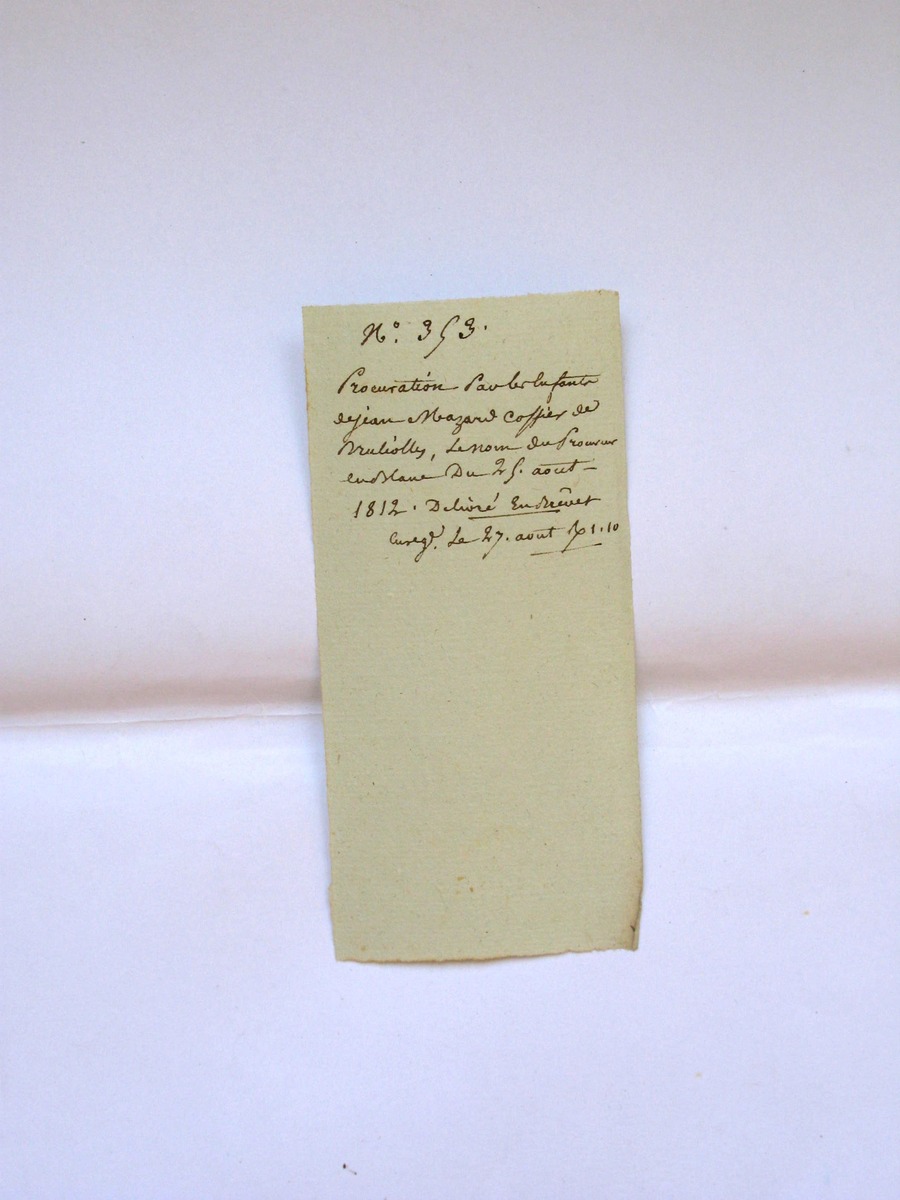 N.° 353.
Procuration Par les Enfants
de jean Mazard Coffier de
Bruliolles, Le nom du Procureur
en Blanc Du 25. aout
1812. Delivré En Brêvet
Enregé. Le 27. aout 1.10